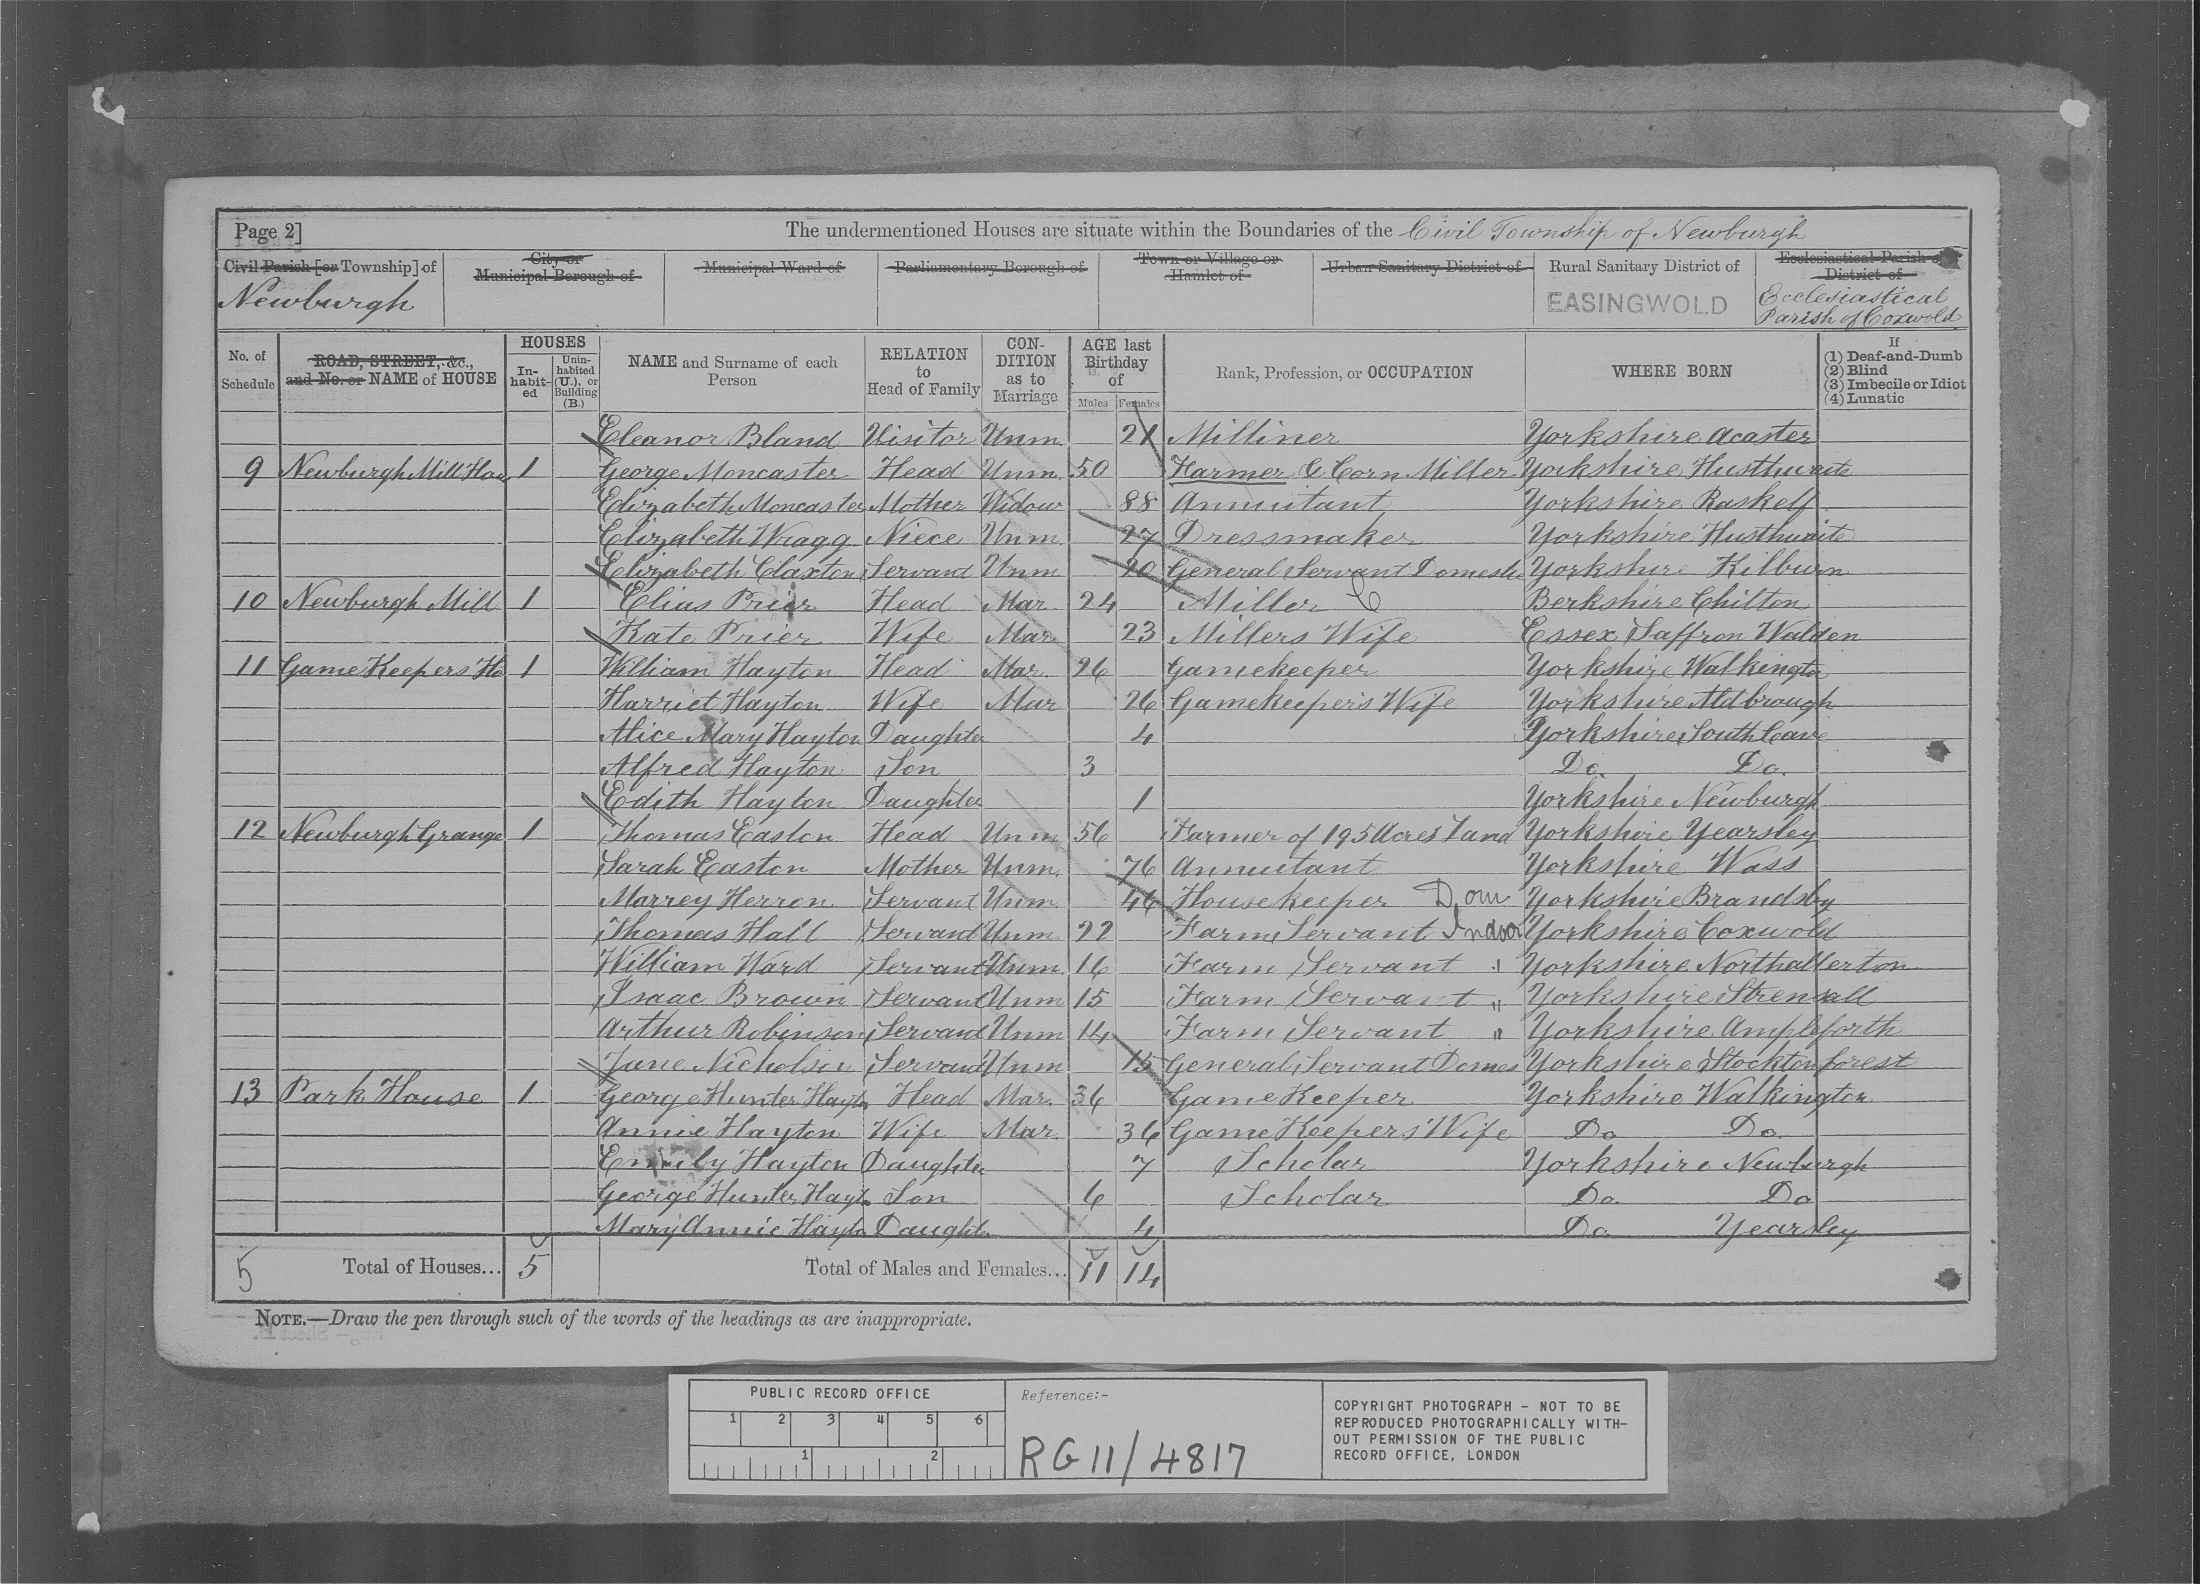 Page 2] The undermentioned Houses are situate within the Boundaries of the Civil Township of Newburgh
Civil Parish [or Township] of City or Municipal Borough of Municipal Ward of Parliamentary Borough of Town or Village or Hamlet of Urban Sanitary District of Rural Sanitary District of Ecclesiastical Parish or District of
Newburgh EASINGWOLD Ecclesiastical Parish of Coxwold
No. of Schedule ROAD, STREET, &c., and No. or NAME of HOUSE HOUSES Inhabited Uninhabited (U.), or Building (B.) NAME and Surname of each Person RELATION to Head of Family CONDITION as to Marriage AGE last Birthday of Males Females Rank, Profession, or OCCUPATION WHERE BORN If (1) Deaf-and-Dumb (2) Blind (3) Imbecile or Idiot (4) Lunatic
Eleanor Bland Visitor Unm. 21 Milliner Yorkshire Acaster
9 Newburgh Mill Hous 1 George Moncaster Head Unm. 50 Farmer & Corn Miller Yorkshire Husthwaite
Elizabeth Moncaster Mother Widow 88 Annuitant Yorkshire Raskelf
Elizabeth Wragg Niece Unm 27 Dressmaker Yorkshire Husthwaite
Elizabeth Claxton Servant Unm 20 General Servant Domestic Yorkshire Kilburn
10 Newburgh Mill 1 Elias Prier Head Mar. 24 Miller C Berkshire Chilton
Kate Prier Wife Mar. 23 Millers Wife Essex Saffron Walden
11 Game Keepers' Ho 1 William Hayton Head Mar. 26 Gamekeeper Yorkshire Walkington
Harriet Hayton Wife Mar 26 Gamekeeper's Wife Yorkshire Aldbrough
Alice Mary Hayton Daughter 4 Yorkshire South Cave
Alfred Hayton Son 3 Do. Do.
Edith Hayton Daughter 1 Yorkshire Newburgh
12 Newburgh Grange 1 Thomas Easton Head Unm 56 Farmer of 195 Acres Land Yorkshire Yearsley
Sarah Easton Mother Unm. 76 Annuitant Yorkshire Wass
Marrey Herron Servant Unm. 46 Housekeeper Dom Yorkshire Brandsby
Thomas Hall Servant Unm. 22 Farm Servant Indoor Yorkshire Coxwold
William Ward Servant Unm. 16 Farm Servant " Yorkshire Northallerton
Isaac Brown Servant Unm 15 Farm Servant " Yorkshire Strensall
Arthur Robinson Servant Unm 14 Farm Servant " Yorkshire Ampleforth
Jane Nicholson Servant Unm 15 General Servant Domes Yorkshire Stockton forest
13 Park House 1 George Hunter Hayton Head Mar. 36 Game Keeper Yorkshire Walkington
Annie Hayton Wife Mar. 36 Game Keepers' Wife Do Do.
Emily Hayton Daughter 7 Scholar Yorkshire Newburgh
George Hunter Hayton Son 6 Scholar Do. Do
Mary Annie Hayton Daughter 4 Do. Yearsley
5 Total of Houses... 5 Total of Males and Females... 11 14
NOTE.—Draw the pen through such of the words of the headings as are inappropriate.
PUBLIC RECORD OFFICE
1 2 3 4 5 6
1 2
Reference:-
RG 11/4817
COPYRIGHT PHOTOGRAPH - NOT TO BE
REPRODUCED PHOTOGRAPHICALLY WITH-
OUT PERMISSION OF THE PUBLIC
RECORD OFFICE, LONDON